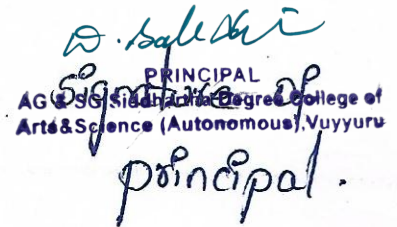 PRINCIPAL
Signature of
AG & SG Siddhartha Degree College of
Arts&Science (Autonomous),Vuyyuru
principal.